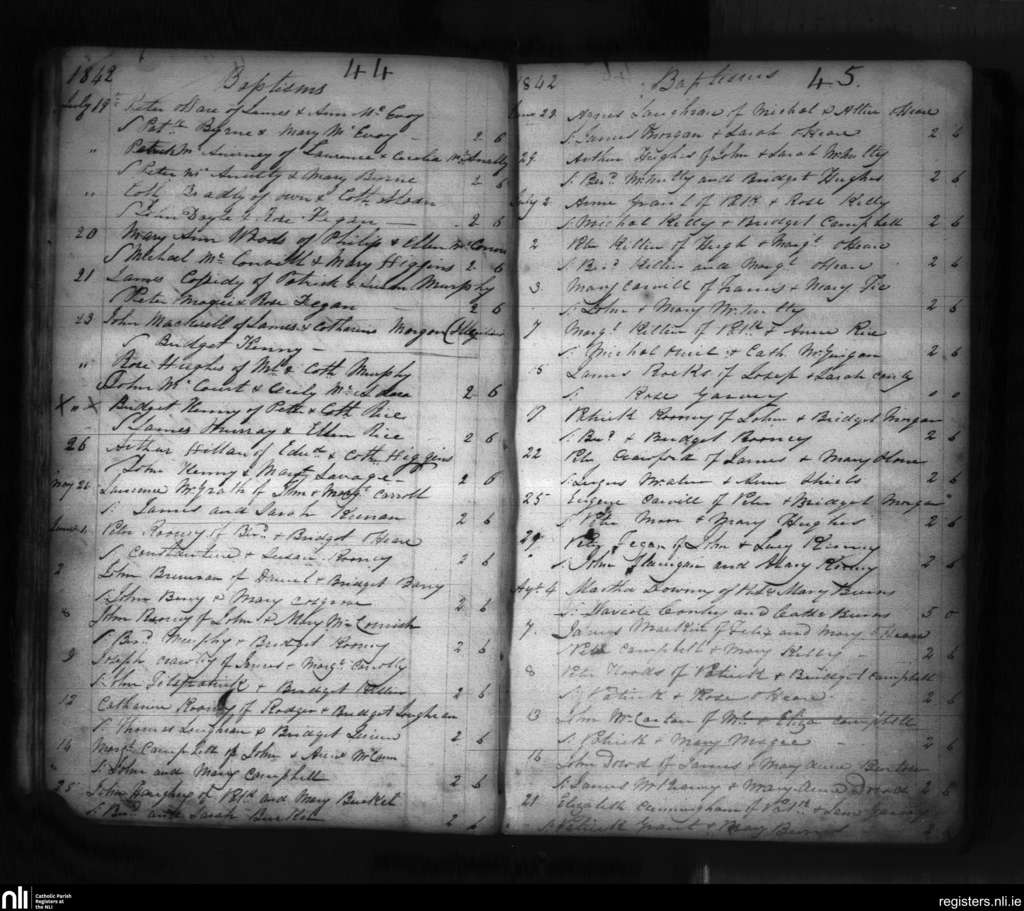 1842 Baptisms 44
July 19th Peter O'Hare of James & Ann McEvoy
S Patk Byrne & Mary McEvoy 2 6
" Patrick McAnirney of Laurence & Cecelia McAnally
S Peter McAnulty & Mary Byrne 2 6
" Cath Bradly of Owen & Cath
S John Doyle & Rose Fegan 2 6
20 Mary Ann Woods of Philip & Ellen McConvi
S Michael McConvill & Mary Higgins 2 6
21 James Copidy of Patrick & Susan Murphy
Peter Magee & Rose Fegan 2 6
23 John Mackvill of James & Catharine Morgan
S Bridget Kenny
" Rose Hughes of Ml & Cath Murphy
John McCourt & Cicily 2 6
X " X Bridget Kenny of Peter & Cath Rice
S James Murray & Ellen Rice 2 6
26 Arthur Hillan of Edwd & Cath Higgins
John Kenny & Margt Savage 2 6
May 26 Laurence McGrath of John & Margt Carroll
S. James and Sarah Keenan 2 6
Peter Rooney of Brd & Bridget Hare
S. Constantine & Susan Rooney 2 6
2 John Brennan of Daniel & Bridget Barry
S. John Berry & Mary Cosgrove 2 6
8 John Rooney of John & Mary McCormick
S Brd Murphy & Bridget Rooney 2 6
9 Joseph Crawley of James & Margt Connolly
S. John Fitzpatrick & Bridget Killen 2 6
12 Catharine Rooney of Rodger & Bridget Loughran
S. Thomas Loughran & Bridget Quinn 2 6
14 Margt Campbell of John & Anne McCann
S. John and Mary Campbell 2 6
25 John Haughey of Patk and Mary Burket
S. Brd and Sarah Burket 2 6
1842 Baptisms 45.
June 29 Agnes Loughran of Michel & Allice O'Hare
S. James Morgan & Sarah O'Hare 2 6
29 Arthur Hughes of John & Sarah McNulty
S. Brd McNulty and Bridget Hughes 2 6
July 2 Anne Grant of Patk & Rose Kelly
S. Michel Kelly & Bridget Campbell 2 6
2 Peter Killen of Hugh & Margt O'Hare
S. Brd Killen and Margt O'Hare 2 6
3. Mary Carvill of Francis & Mary Fee
S. John & Mary McNulty 2 6
7 Margt Killen of Patk & Anne Rice
S. Michel & Cath McGuigan 2 6
15 James Rocks of Joseph & Sarah
S. Rose Garvey 0 0
17 Patrick Rooney of John & Bridget Morgan
S. Brd & Bridget Rooney 2 6
22 Peter Crawford of James & Mary Hare
S. Eugene McAteer & Ann Shiels 2 6
25 Eugene Carvill of Peter & Bridget Morgan
S. Peter Moor & Mary Hughes 2 6
29 Peter Fegan of John & Lucy Rooney
S. John Flanigan and Mary Rooney 2 6
Augt 4 Martha Downey of Patk & Mary Burns
S. Conley and Cath Burns 5 0
7. James Mackin of Felix and Mary O'Hare
S Peter Campbell & Mary Kelly 2 6
8 Peter Hooks of Patrick & Bridget Campbell
S. Patrick & Rose O'Hare 2 6
13 John McCartan of Ml & Eliza Campbell
S. Patrick & Mary Magee 2 6
16 John Dowd of James & Mary Anne Burton
S. James & Mary Anne Dowd 2 6
21 Elizabeth Cunningham of Patk & Jane Garvey
S. Patrick Grant & Mary Burns 2
nli
Catholic Parish
Registers at
the NLI
registers.nli.ie